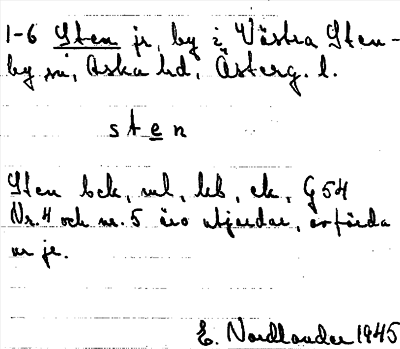 1-6 Sten jr, by i Västra Sten-
by sn, Aska hd, Österg. l.
sten
Sten bck, ml, lkb, ek, G 54
Nr. 4 och nr. 5 äro utjordar, avförda
ur jr.
E. Nordlander 1945